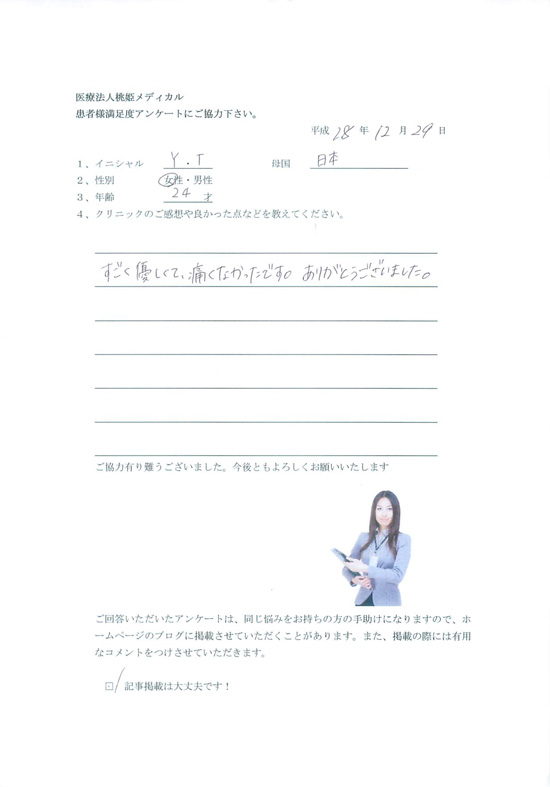 医療法人桃姫メディカル
患者様満足度アンケートにご協力下さい。
平成 28 年 12 月 29 日
1、イニシャル Y.T 母国 日本
2、性別 女性・男性
3、年齢 24 才
4、クリニックのご感想や良かった点などを教えてください。
すごく優しくて、痛くなかったです。ありがとうございました。
ご協力有り難うございました。今後ともよろしくお願いいたします
ご回答いただいたアンケートは、同じ悩みをお持ちの方の手助けになりますので、ホ
ームページのブログに掲載させていただくことがあります。また、掲載の際には有用
なコメントをつけさせていただきます。
記事掲載は大丈夫です！